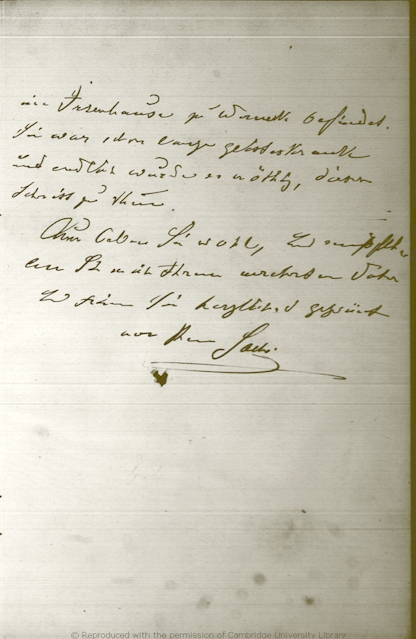 im Irrenhause zu Werneck befindet.
Sie war schon lange geisteskrank
und endlich wurde es nöthig, diesen
Schritt zu thun.
Nun leben Sie wohl,
Ihrem verehrten Vater
Sie herzlichst gegrüsst
von Ihrem Sachs.
© Reproduced with the permission of Cambridge University Library